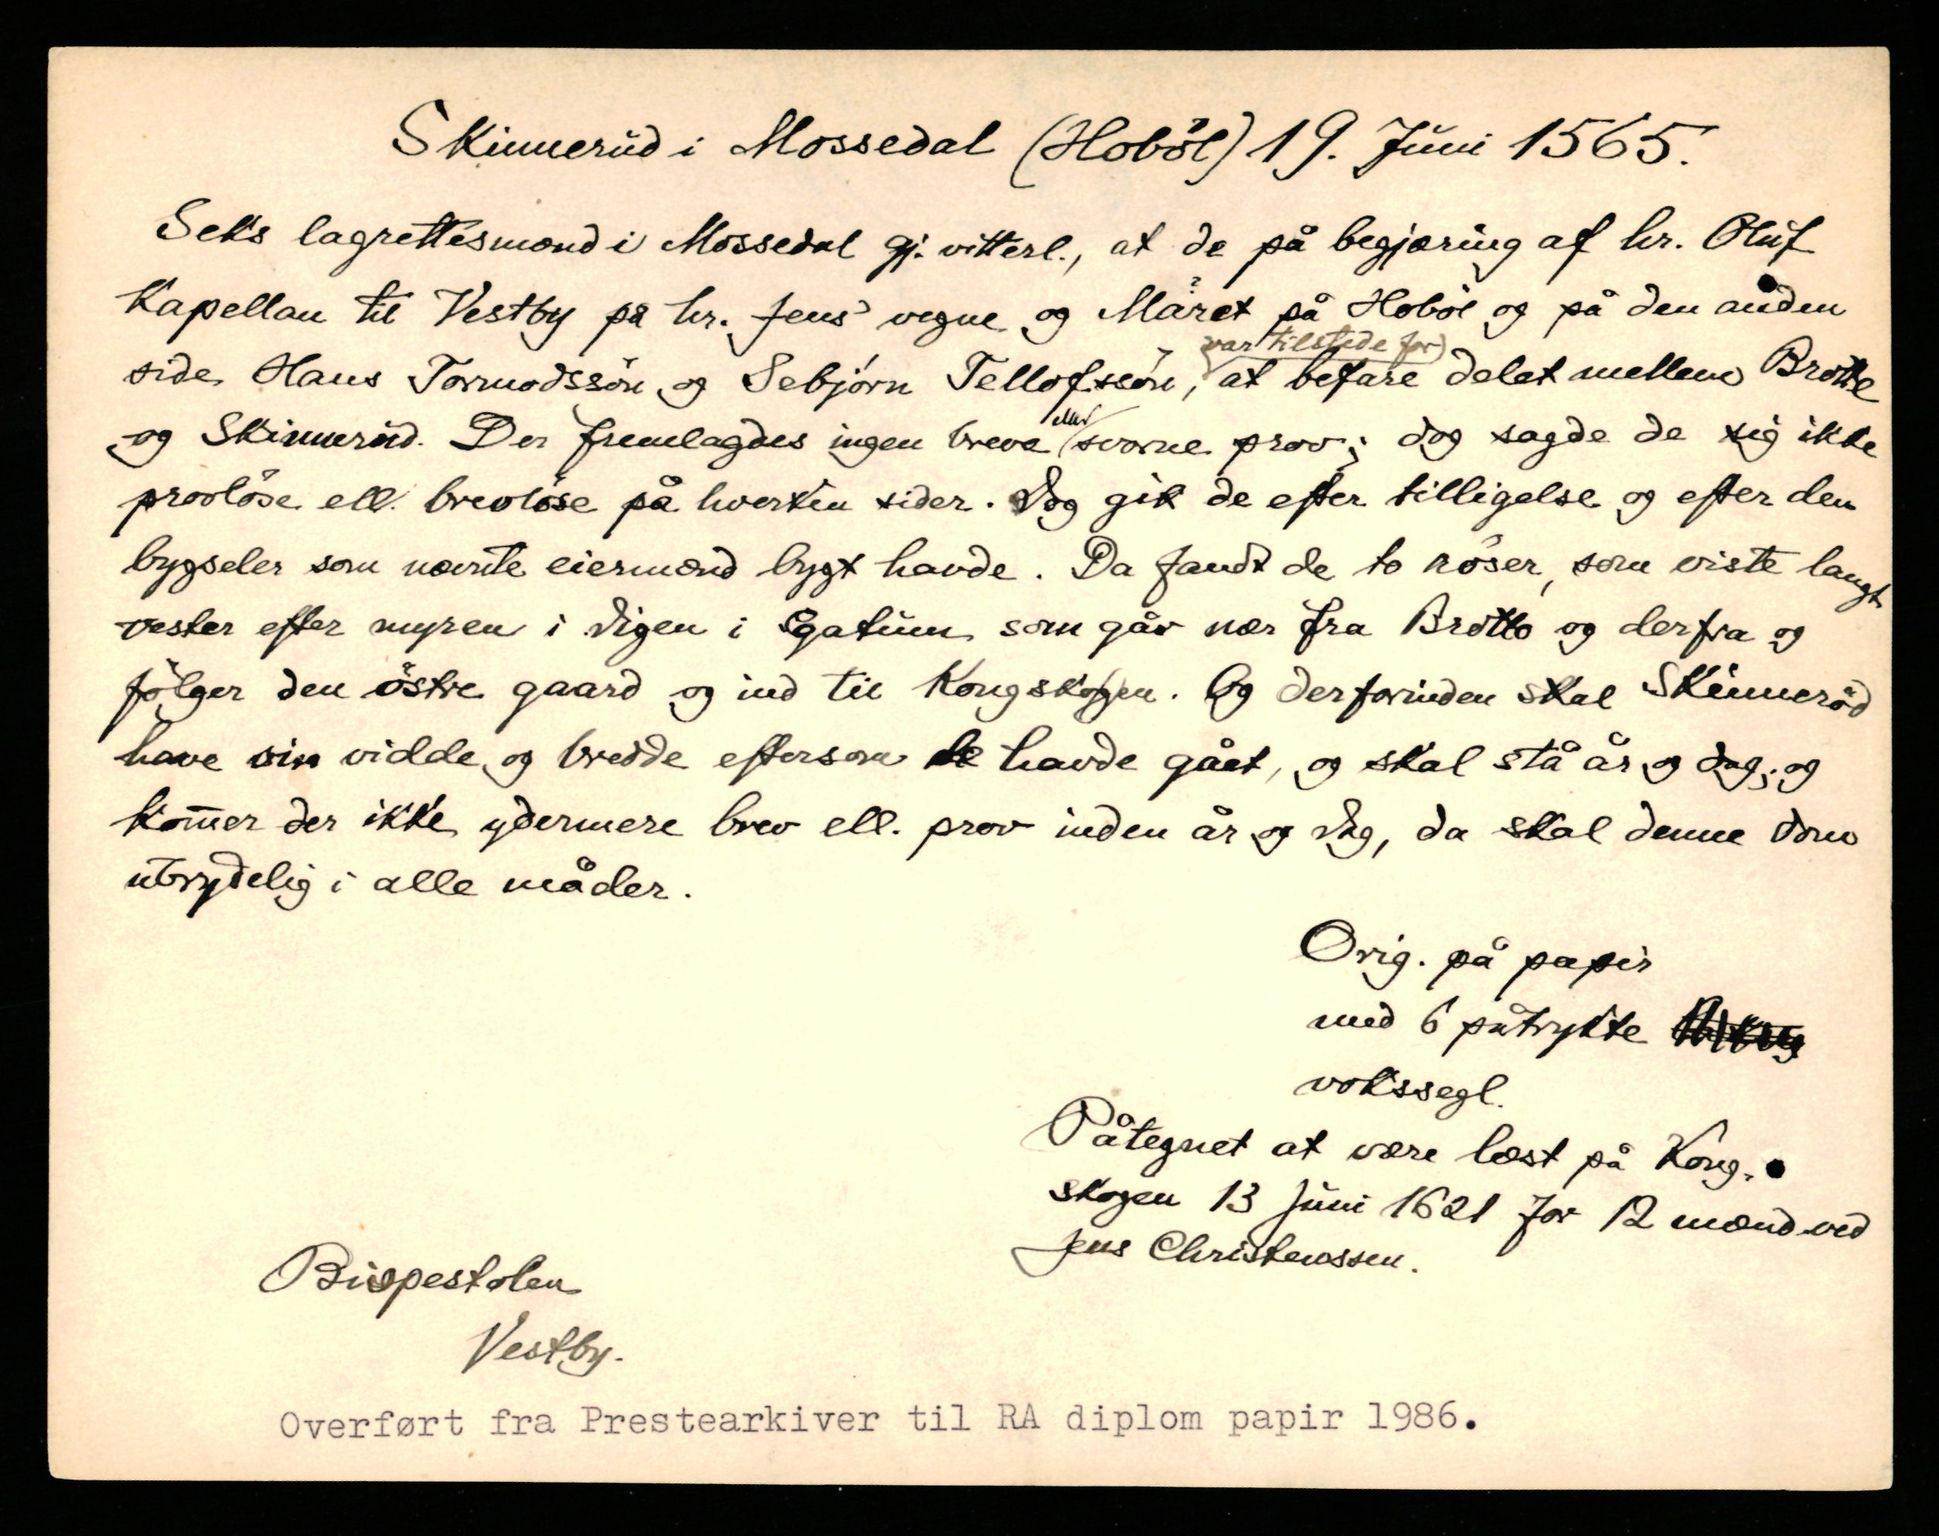 Skinnerud i Mossedal (Hoböl) 19. Juni 1565.
Seks lagrettesmænd i Mossedal gj. vitterl., at de på begjæring af hr. Oluf
Kapellan til Vestby på hr. Jens' vegne og Maret på Hoböl og på den anden
?
side Hans Tormodssön og Sebjörn Tellofssön, at befare delet mellem Brotte
(var tilstede for)
og Skinnerud. Der fremlagdes ingen breve svorne prov; dog sagde de sig ikke
ell.
provlöse ell. brevlöse på hverken sider. Dog gik de efter tilligelse og efter den
bygseler som nævnte eiermænd bygt havde. Da fandt de to röser, som viste langt
vester efter myren i digen i gatum som går nær fra Brotto og derfra og
fölger den östre gaard og ind til Kongskogen. Og derforinden skal Skinneröd
have sin vidde og bredde eftersom de havde gået, og skal stå år og dag; og
kom̅er der ikke ydermere brev ell. prov inden år og dag, da skal denne dom
ubrydelig i alle måder.
Orig. på papir
med 6 påtrykte
vokssegl.
Påtegnet at være læst på Kong-
skogen 13 Juni 1621 for 12 mænd ved
Jens Christenssen.
Bispestolen
Vestby.
Overført fra Prestearkiver til RA diplom papir 1986.